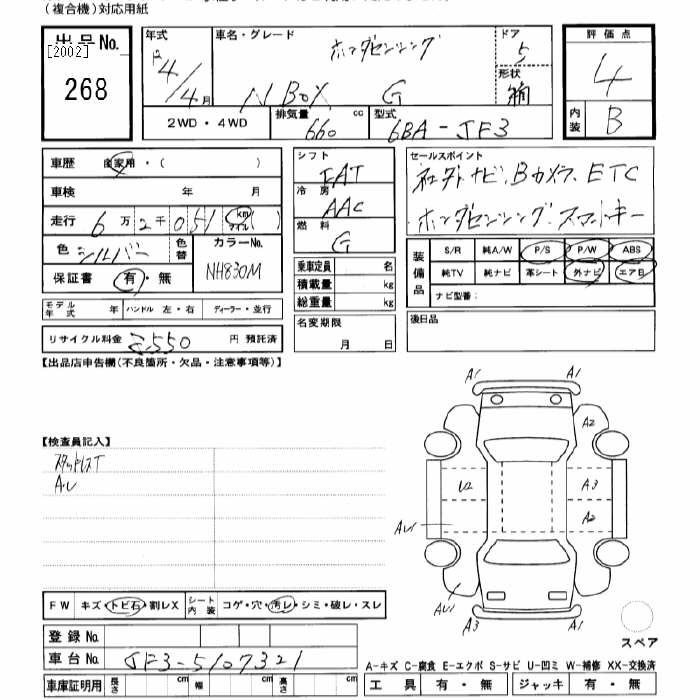 (複合機)対応用紙
出品No.
[2002]
268
年式
R4/4月
車名・グレード
ホンダセンシング
N BOX G
ドア
5
形状
箱
評価点
4
内装
B
2WD・4WD
排気量 660 cc
型式 6BA-JF3
車歴 自家用・( )
車検 年 月
走行 6万2千051 km マイル ( )
色 シルバー
色替
カラーNo.
NH830M
保証書 有・無
シフト
FAT
冷房
AAC
燃料
G
乗車定員 名
積載量 kg
総重量 kg
セールスポイント
社外ナビ、Bカメラ、ETC
ホンダセンシング、スマートキー
装備品
S/R 純A/W P/S P/W ABS
純TV 純ナビ 革シート 外ナビ エアB
ナビ型番:
モデル年式 年 ハンドル 左・右 ディーラー・並行
リサイクル料金 8,550 円 預託済
名変期限
月 日
後日品
【出品店申告欄(不良箇所・欠品・注意事項等)】
【検査員記入】
スタッドレスT
AU
A1 A1
A2
U2 A3
AU1 A2
AU1
A3 A1
スペア
FW キズ・トビ石・割レX シート内装 コゲ・穴・汚レ・シミ・破レ・スレ
登録No.
車台No. JF3-5107321
車庫証明用 長さ cm 幅 cm 高さ cm
A-キズ C-腐食 E-エクボ S-サビ U-凹ミ W-補修 XX-交換済
工具 有・無 ジャッキ 有・無